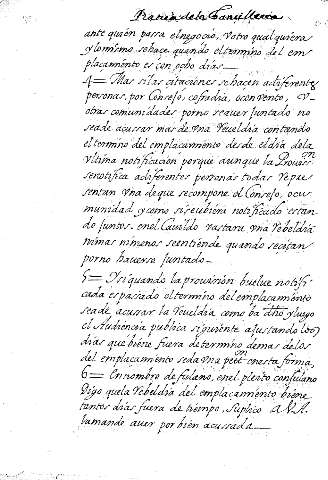 Pratica de la Chancilleria
ante quien passa el negocio, v otro qual quiera
y lo mismo se hace quando el termino del em-
plaçamento es con ocho dias —
4 = Mas si las citaciones se hacen a diferentes
personas, por Consejo, cofradia, o convento, v
otras comunidades por no se aver juntado no
se a de acussar mas de vna reveldia contando
el termino del emplaçamento desde el dia de la
vltima notificacion porque aunque la Prouiss.on
se notifica a diferentes personas todas repre-
sentan vna de que se compone el Consejo, o co-
munidad y como si se vbiera notificado estan-
do juntos en el Cauildo vastara vna rebeldia
ni mas ni menos se entiende quando se citan
por no haverse juntado —
5 = Y si quando la provission buelue notifi-
cada es pasado el termino del emplaçamento
se a de acusar la reveldia como ba dho y luego
el Audiencia publica siguiente ajustando los
dias que biene fuera de termino demas de los
del emplaçamento se da vna petn en esta forma,
6 = En nombre de fulano, en el pleito con fulano
Digo que la rebeldia del emplaçamento biene
tantos dias fuera de tiempo, suplico a V.A.
la mande auer por bien acussada —